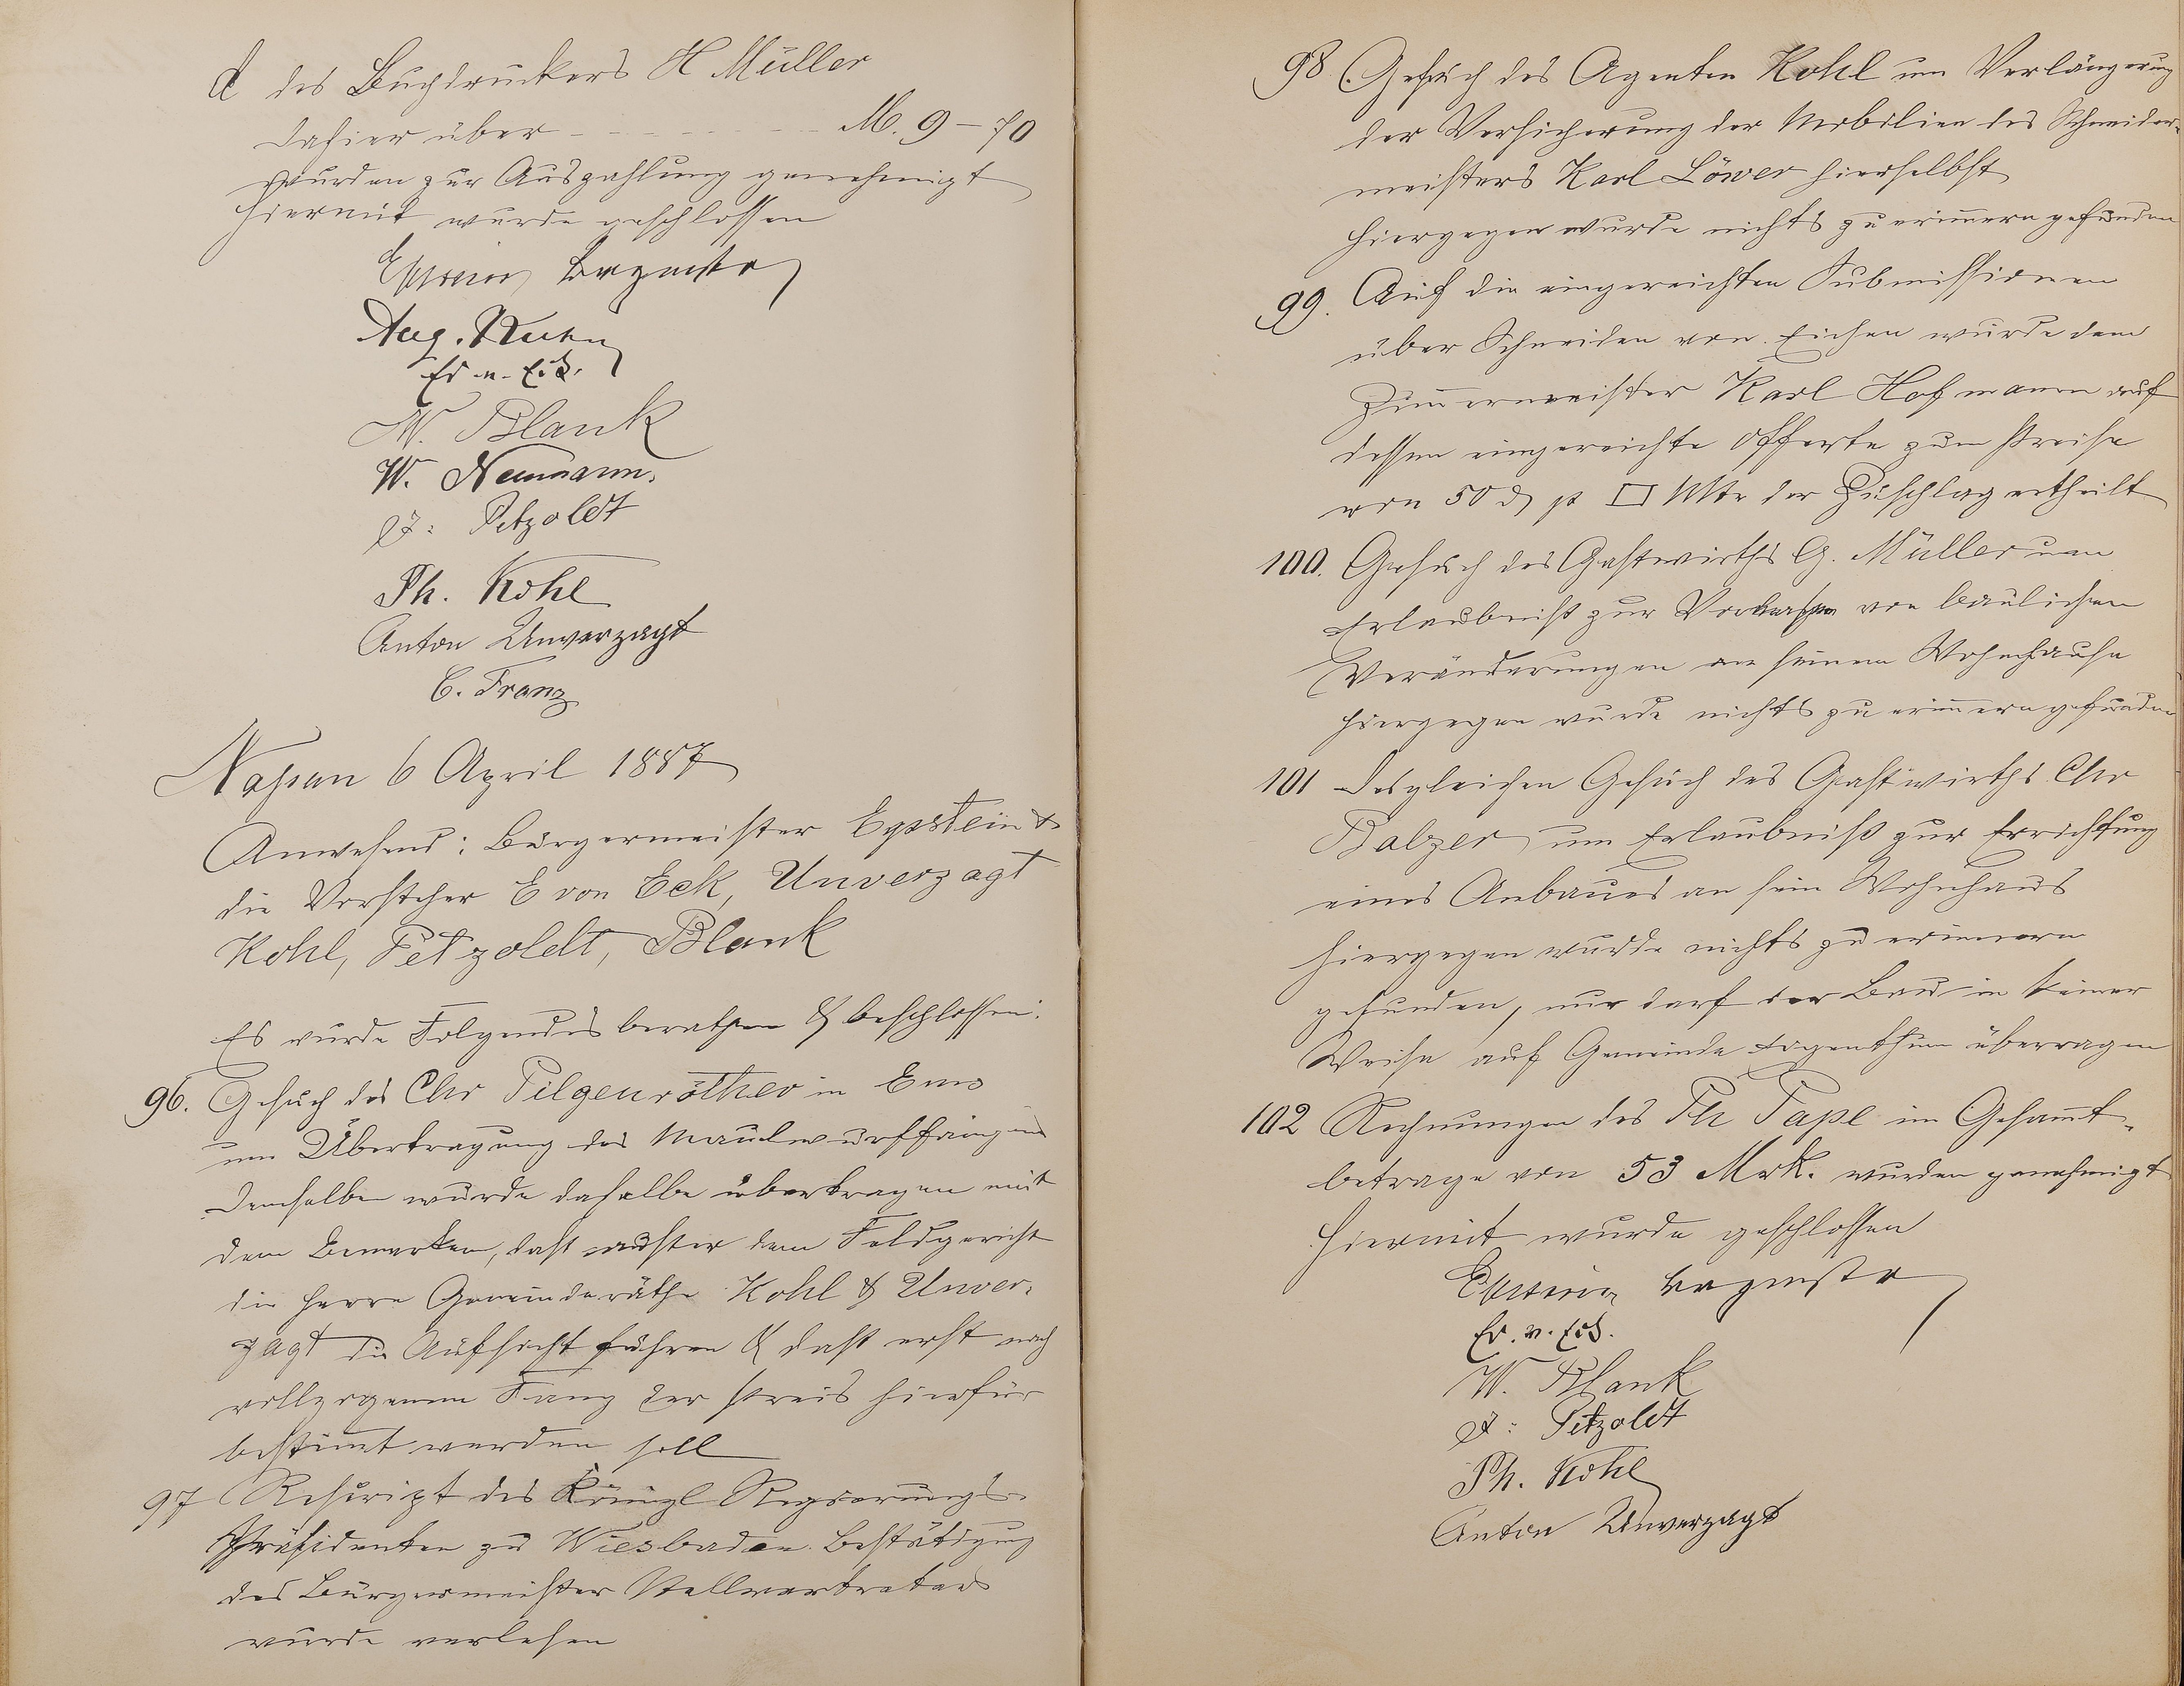 d des Buchdruckers H Müller
dahier über - - - - - - - - M. 9 – 70
wurden zur Auszahlung genehmigt
hiermit wurde geschlossen
Epstein Brgmstr
Aug. Kuhn
Ed v. Eck.
W. Blank
W. Neumann.
F: Petzoldt
Ph. Kohl
Anton Unverzagt
C. Franz
Nassau 6 April 1887
Anwesend: Bürgermeister Epstein &
die Vorsteher E von Eck, Unverzagt
Kohl, Petzoldt, Blank
Es wurde Folgendes berathen & beschlossen:
96. Gesuch des Chr Pilgenröther in Ems
um Übertragung des Maulwurffangens
Demselben wurde dasselbe übertragen mit
dem Bemerken, daß außer dem Feldgericht
die Herrn Gemeinderäthe Kohl & Unver-
zagt die Aufsicht führen & daß erst nach
vollzogenem Fang der Preis hierfür
bestimmt werden soll
97 Rescript des Königl Regierungs-
Präsidenten zu Wiesbaden Bestätigung
des Bürgermeister Stellvertreters
wurde verlesen
98 Gesuch des Agenten Kohl um Verlängerung
der Versicherung der Mobilien des Schneider-
meisters Karl Löwer hierselbst
hiergegen wurde nichts zu erinnern gefunden
99. Auf die eingereichten Submissionen
über Schneiden von Eichen wurde dem
Zimmermeister Karl Hofmann auf
dessen eingereichte Offerte zum Preise
von 50 d p □ Mtr der Zuschlag ertheilt
100. Gesuch des Gastwirths G. Müller um
Erlaubniß zur Vornahme von baulichen
Veränderungen an seinem Wohnhause
hiergegen wurde nichts zu erinnern gefunden
101 desgleichen Gesuch des Gastwirths Chr
Balzer um Erlaubniß zur Errichtung
eines Anbaues an sein Wohnhaus
hiergegen wurde nichts zu erinnern
gefunden, nur darf der Bau in keiner
Weise auf Gemeinde Eigenthum überragen
102 Rechnungen des Ph Pape im Gesammt-
betrage von 53 Mrk. wurden genehmigt
hiermit wurde geschlossen
Epstein Brgmstr
Ed. v. Eck.
W. Blank
F: Petzoldt
Ph. Kohl
Anton Unverzagt